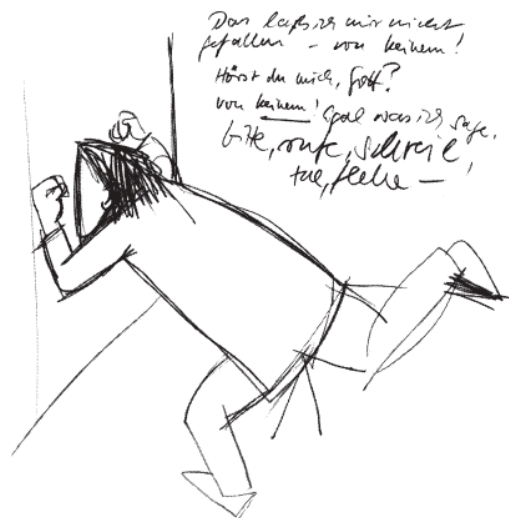 Das lass ich mir nicht
gefallen – von keinem!
Hörst du mich, Gott?
von keinem! Egal was ich sage,
bitte, rufe, schreie,
tue, flehe – !